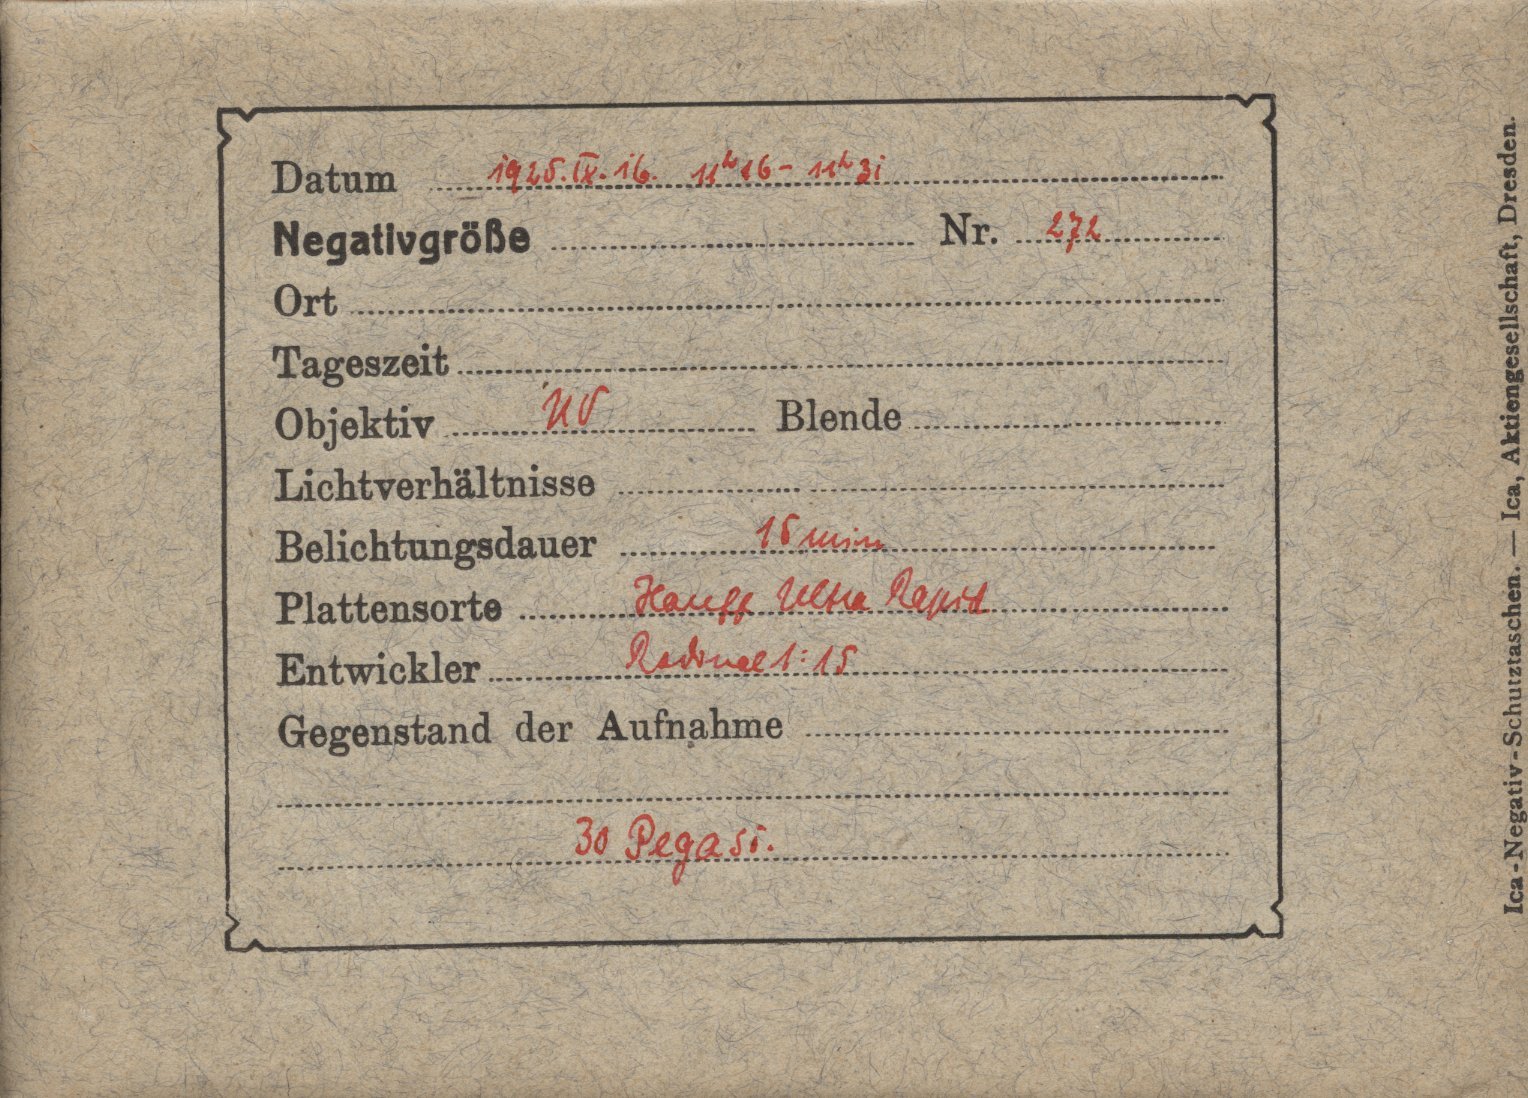 Datum 1925.IX.16. 11h16 - 11h31
Negativgröße Nr. 272
Ort
Tageszeit
Objektiv UV Blende
Lichtverhältnisse
Belichtungsdauer 15 min
Plattensorte Hauff Ultra Rapid
Entwickler Rodinal 1:15
Gegenstand der Aufnahme
30 Pegasi.
Ica-Negativ-Schutztaschen. — Ica, Aktiengesellschaft, Dresden.